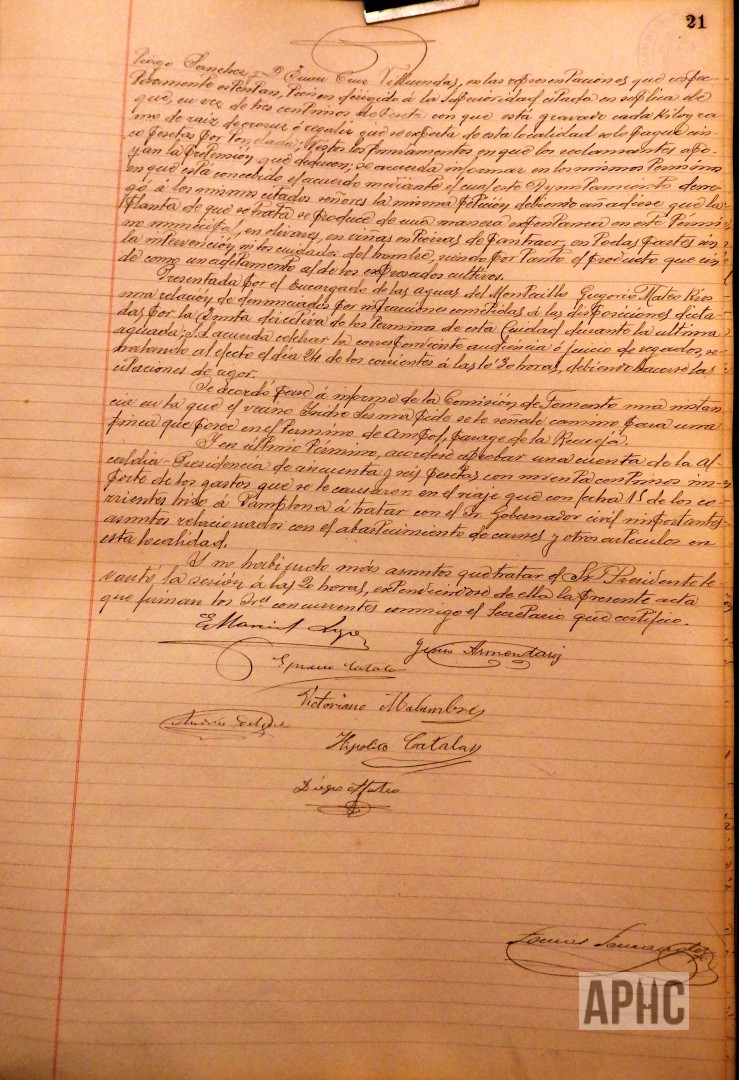 21
Sanchez y D. Juan Cruz Villuendas, en las representaciones que respec-
tivamente ostentan, tienen dirigido á la Superioridad citada en súplica de
que, en vez de tres céntimos de peseta con que está gravado cada kilogra-
mo de raiz de orozuz ó regaliz que se exporta de esta localidad solo pague cin-
co pesetas por tonelada; vistos los fundamentos en que los reclamantes apo-
yan la pretensión que deducen; se acuerda informar en los mismos términos
en que está concebido el acuerdo mediante el cual este Ayuntamiento dene-
gó á los mismos citados señores la misma petición, debiendo añadirse que la
planta de que se trata se produce de una manera expontanea en este térmi-
no municipal, en olivares, en viñas en piezas de pantraer, en todas partes sin
la intervención ni los cuidados del hombre, siendo por tanto el producto que rin-
de como un aditamento al de los expresados cultivos.
Presentada por el Encargado de las aguas del Montecillo Gregorio Mateo Rios
una relación de denunciados por infracciones cometidas á las disposiciones dicta-
das por la Junta directiva de los términos de esta Ciudad durante la última
aguada; se acuerda celebrar la correspondiente audiencia ó juicio de regadios, se-
ñalando al efecto el día 24 de los corrientes á las 16'30 horas, debiendo hacerse las
citaciones de rigor.
Se acordó pase á informe de la Comisión de Fomento una instan-
cia en la que el vecino Isidro Lerma pide se le señale camino para una
finca que posee en el término de Campos, parage de la
Y en último término, acordose aprobar una cuenta de la Al-
caldia-Presidencia de cincuenta y seis pesetas con noventa céntimos im-
porte de los gastos que se le causaron en el viaje que con fecha 15 de los co-
rrientes hizo á Pamplona á tratar con el Sr. Gobernador civil importantes
asuntos relacionados con el abastecimiento de carnes y otros artículos en
esta localidad.
Y no habiendo más asuntos que tratar el Sr. Presidente le-
vantó la sesión á las 20 horas, extendiéndose de ella la presente acta
que firman los Sres. concurrentes conmigo el Secretario que certifico.
Jesús Armendariz
Catalá
Victoriano Malumbres
Hipolito Catalan
Diego Mateo
APHC